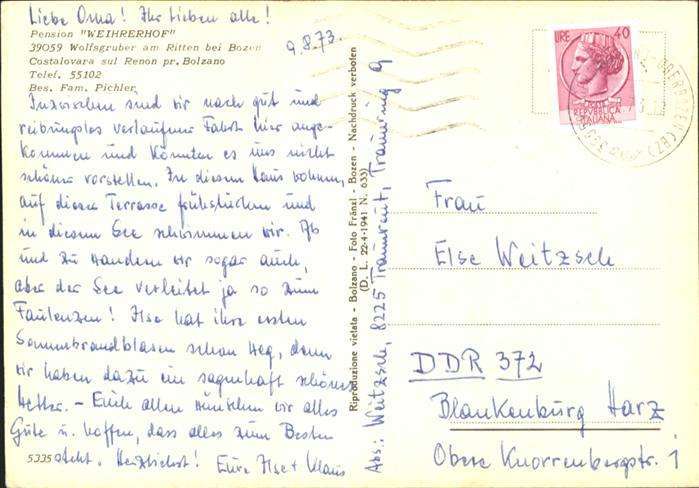 Liebe Oma! Ihr lieben alle!
Pension "WEIHRERHOF"
39059 Wolfsgruber am Ritten bei Bozen
Costalovara sul Renon pr. Bolzano
Telef. 55102
Bes. Fam. Pichler
9.8.73.
Inzwischen sind wir nach gut und
reibungslos verlaufener Fahrt hier ange-
kommen und könnten es uns nicht
schöner vorstellen. In diesem Haus wohnen,
auf dieser Terrasse frühstücken und
in diesem See schwimmen wir. Ab
und zu wandern wir sogar auch,
aber der See verleitet ja so zum
Faulenzen! Ilse hat ihre ersten
Sonnenbrandblasen schon weg, denn
wir haben dazu ein sagenhaft schönes
Wetter. - Euch allen wünschen wir alles
Gute u. hoffen, dass alles zum Besten
steht. Herzlichst! Eure Ilse + Klaus
5335
Riproduzione vietata - Bolzano - Foto Fränzl - Bozen - Nachdruck verboten
(D. L. 22-4-1941 N. 633)
Abs.: Weitzsch, 8225 Traunreut, Traunring 9
LIRE 40
REPUBBLICA
ITALIANA
Frau
Else Weitzsch
DDR 372
Blankenburg Harz
Obere Knorrenbergstr. 1